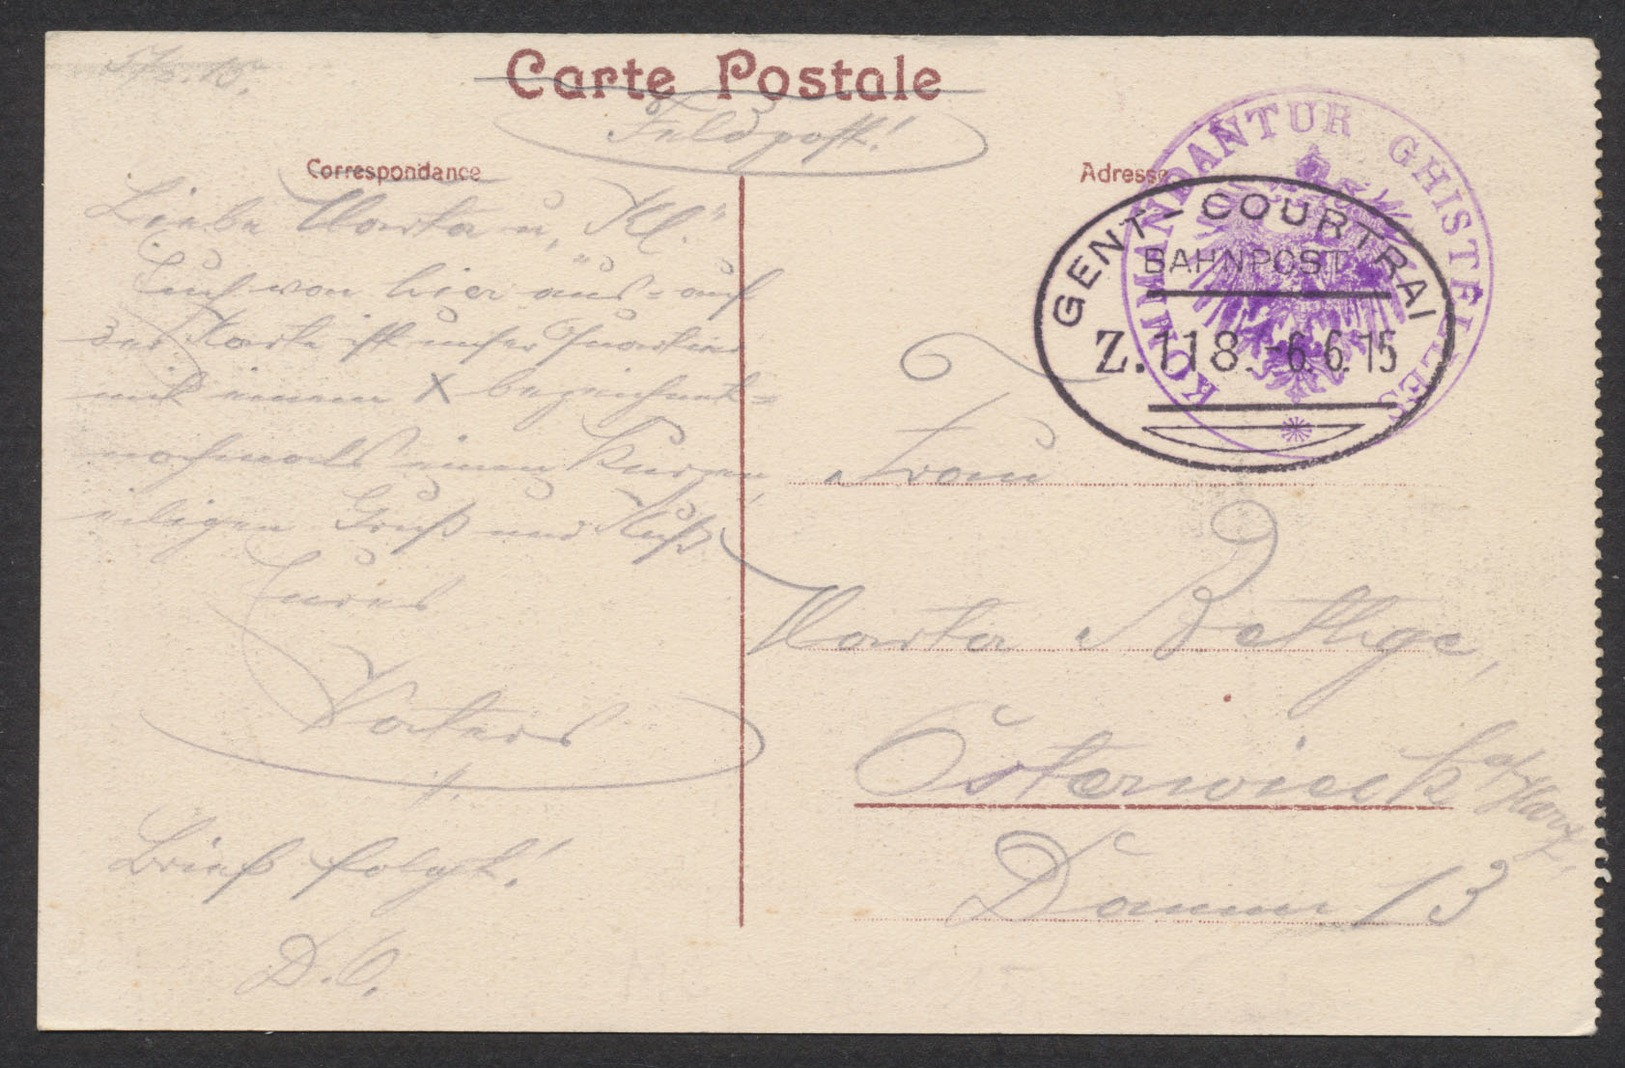 5/6.15.
Carte Postale
Feldpost!
Correspondance
Adresse
KOMMANDANTUR GHISTELLES
GENT - COURTRAI
BAHNPOST
Z.118. -6.6.15
Liebe Marta u. Kl."
Euch von hier aus - auf
der Karte ist unser Quartier
mit einem X bezeichnet -
nochmals einen kurzen,
eiligen Gruß und Kuß
Eures
Vaters
Brief folgt!
D.O.
Frau
Marta Bethge,
Osterwieck a/Harz,
Damm 13